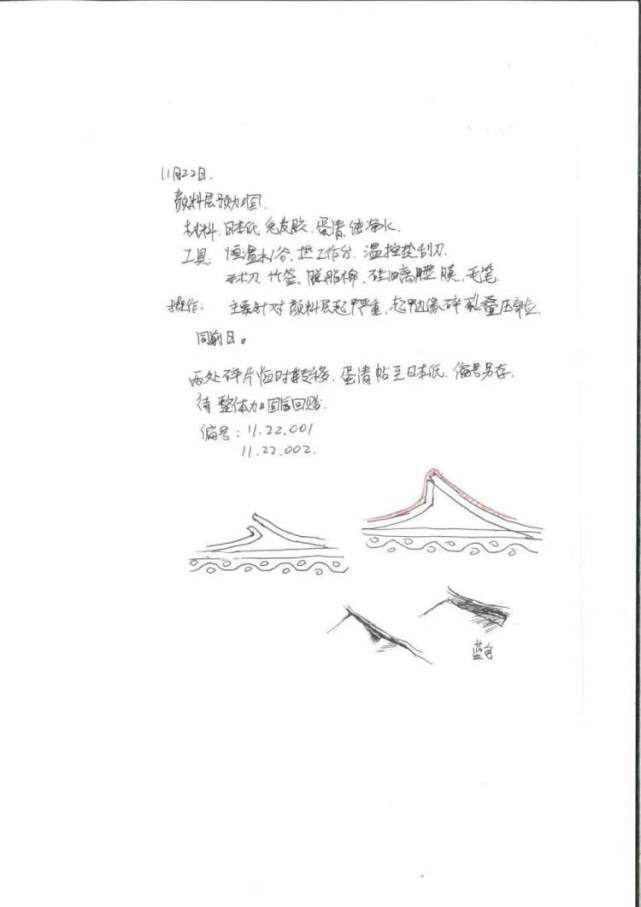 11月22日.
颜料层预加固.
材料. 日本纸 兔皮胶. 蛋清. 纯净水.
工具 恒温水浴. 热工作台. 温控热刮刀.
手术刀. 竹签. 脱脂棉. 硅油离型膜. 毛笔.
操作: 主要针对颜料层起甲严重, 起甲边缘碎裂叠压部位.
同前日。
两处碎片临时转移. 蛋清帖至日本纸. 编号另存.
待整体加固后回贴.
编号: 11.22.001
11.22.002.
蓝色